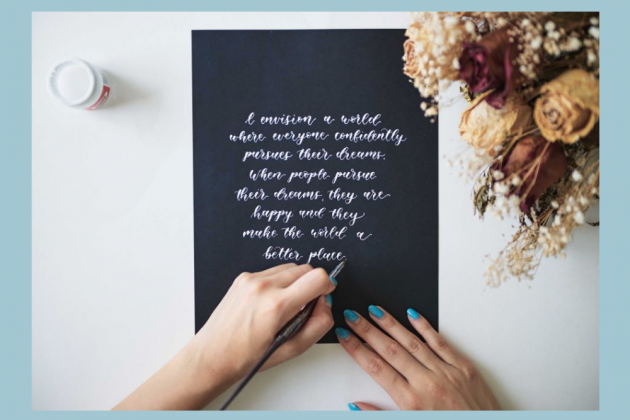 I envision a world
where everyone confidently
pursues their dreams.
When people pursue
their dreams, they are
happy and they
make the world a
better place.